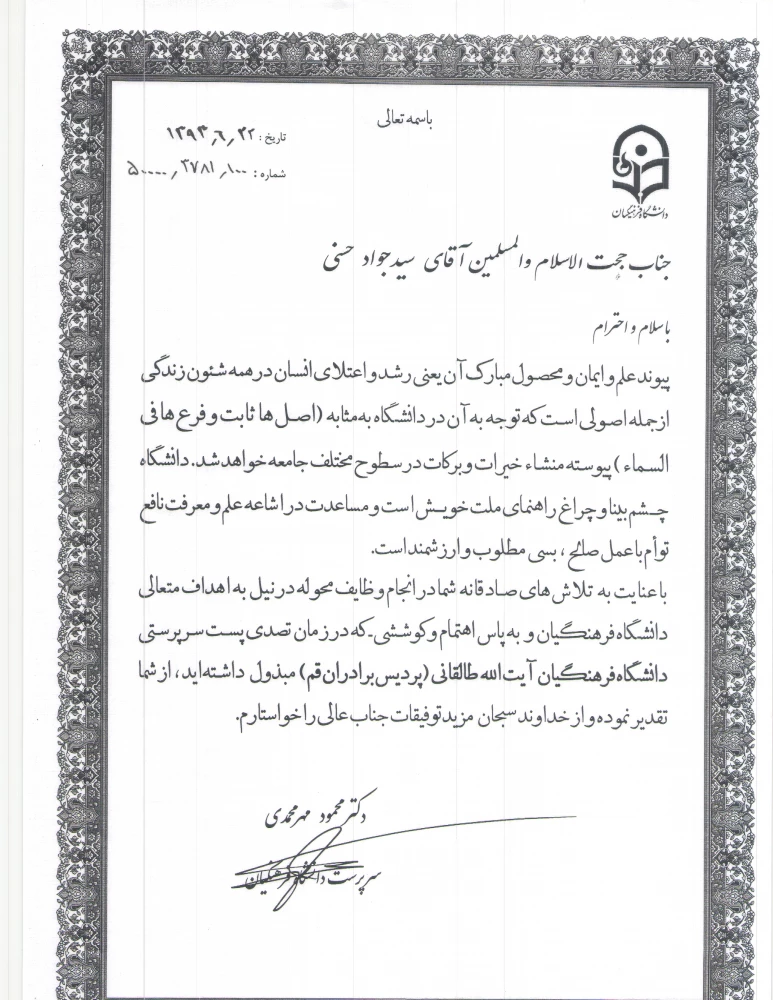 باسمه تعالی
تاریخ: ۱۳۹۳٫۶٫۲۲
شماره: ۵۰۰۰۰٫۳۷۸۱٫۱۰۰
دانشگاه فرهنگیان
جناب حجت الاسلام والمسلمین آقای سیدجواد حسنی
باسلام و احترام
پیوند علم و ایمان و محصول مبارک آن یعنی رشد و اعتلای انسان در همه شئون زندگی
از جمله اصولی است که توجه به آن در دانشگاه به مثابه (اصل ها ثابت و فرع ها فی
السماء) پیوسته منشاء خیرات و برکات در سطوح مختلف جامعه خواهد شد. دانشگاه
چشم بینا و چراغ راهنمای ملت خویش است و مساعدت در اشاعه علم و معرفت نافع
توأم با عمل صالح، بسی مطلوب و ارزشمند است.
با عنایت به تلاش های صادقانه شما در انجام وظایف محوله در نیل به اهداف متعالی
دانشگاه فرهنگیان و به پاس اهتمام و کوششی که در زمان تصدی پست سرپرستی
دانشگاه فرهنگیان آیت الله طالقانی (پردیس برادران قم) مبذول داشته اید، از شما
تقدیر نموده و از خداوند سبحان مزید توفیقات جناب عالی را خواستارم.
دکتر محمود مهرمحمدی
سرپرست دانشگاه فرهنگیان